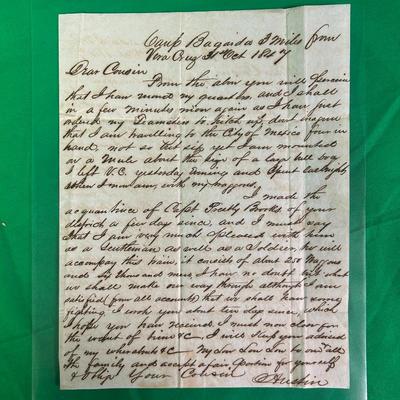 Camp Bagaida 3 Miles from
Vera Cruz 31st Oct 1847
Dear Cousin
From the abov you will perceive
that I have moved my quarters and I shall
in a few minutes moov again as I have just
ordered my Teamsters to hitch up, dont imagine
that I am travelling to the City of Mexico four in
hand, not so that sir yet I am mounted
on a Mule about the size of a large hog
I left V.C. yesterday evening and Spent last night
where I now am with my waggons. I made the
acquantince of Capt Foetly Booths of your
district a few day since, and I must say
that I am very much pleased with him
as a Gentleman as well as a Soldier, he will
accompany this train, it consists of about 250 Waggons
and thousand men, I have no doubt but what
we shall make our way through although I am
satisfied from all accounts that we shall have some
fighting. I wrote you about two day since which
I hope you have received I must now close for
the want of time &c I will keep you advised
of my whereabouts &c My love to one all
the family and accept a for yourself
& Ship Your Cousin Austin